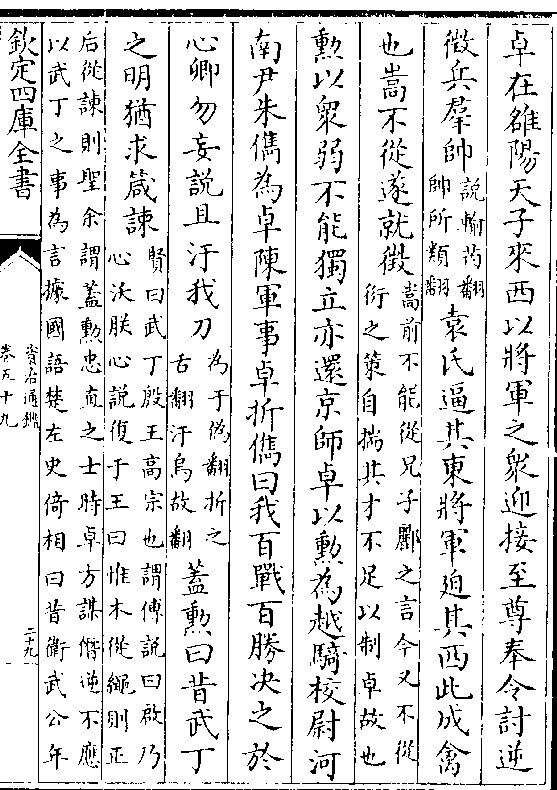 卓在雒陽天子來西以將軍之衆迎接至尊奉令討逆
徵兵羣帥
説輸芮翻
帥所類翻
袁氏逼其東將軍迫其西此成禽
也嵩不從遂就徵
嵩前不能從兄子酈之言今又不從
衍之策自揣其才不足以制卓故也
勲以衆弱不能獨立亦還京師卓以勲為越騎校尉河
南尹朱儁為卓陳軍事卓折儁曰我百戰百勝决之於
心卿勿妄説且汙我刀
為于偽翻折之
舌翻汙烏故翻
蓋勲曰昔武丁
之明猶求箴諫
賢曰武丁殷王高宗也謂傅説曰啟乃
心沃朕心説復于王曰惟木從繩則正
后從諫則聖余謂蓋勲忠直之士時卓方謀僭逆不應
以武丁之事為言據國語楚左史倚相曰昔衛武公年
欽定四庫全書
資治通鑑
卷五十九
二十九